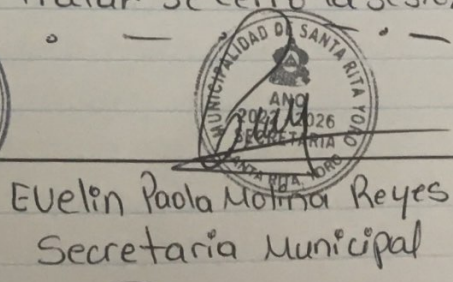 tratar se cerró la sesión
MUNICIPALIDAD DE SANTA RITA YORO
AÑO
2022 2026
SECRETARIA
SANTA RITA, YORO
Evelin Paola Molina Reyes
Secretaria Municipal